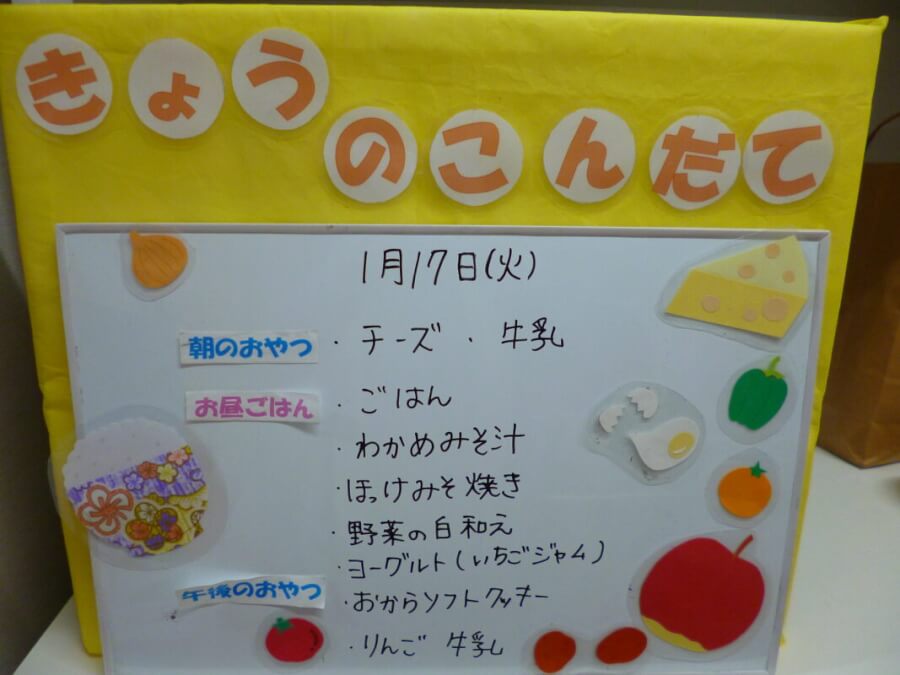 きょう
のこんだて
1月17日(火)
朝のおやつ ・チーズ ・牛乳
お昼ごはん ・ごはん
・わかめみそ汁
・ほっけみそ焼き
・野菜の白和え
・ヨーグルト(いちごジャム)
午後のおやつ ・おからソフトクッキー
・りんご 牛乳